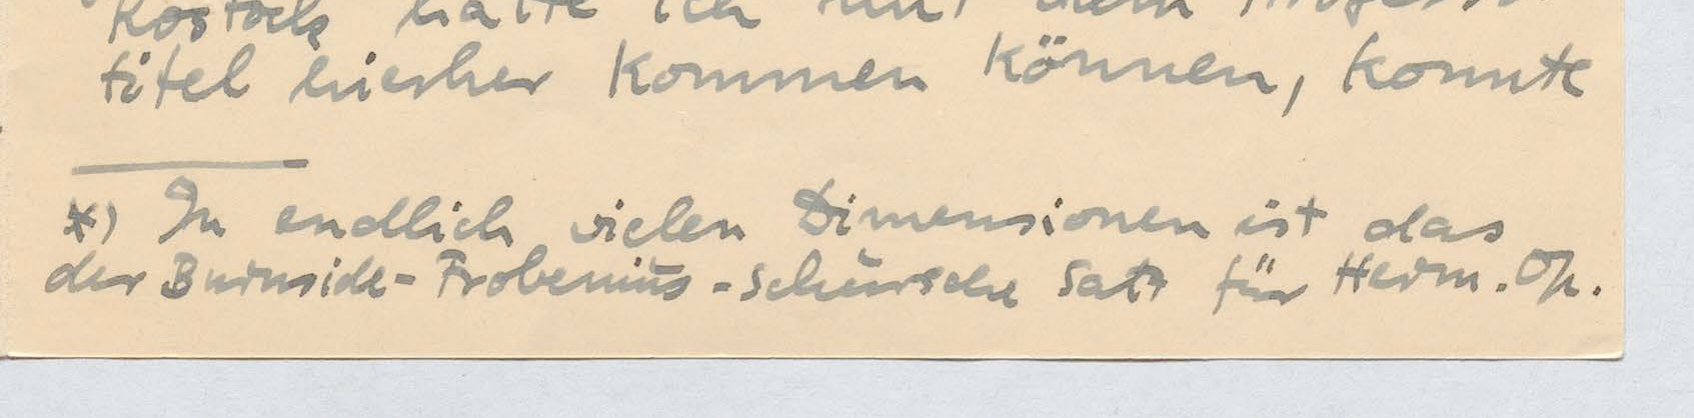 Rostock hätte ich nur dem Professor-
titel hierher kommen können, konnte
*) In endlich vielen Dimensionen ist das
der Burnside-Frobenius-Schursche Satz für Herm. Op.